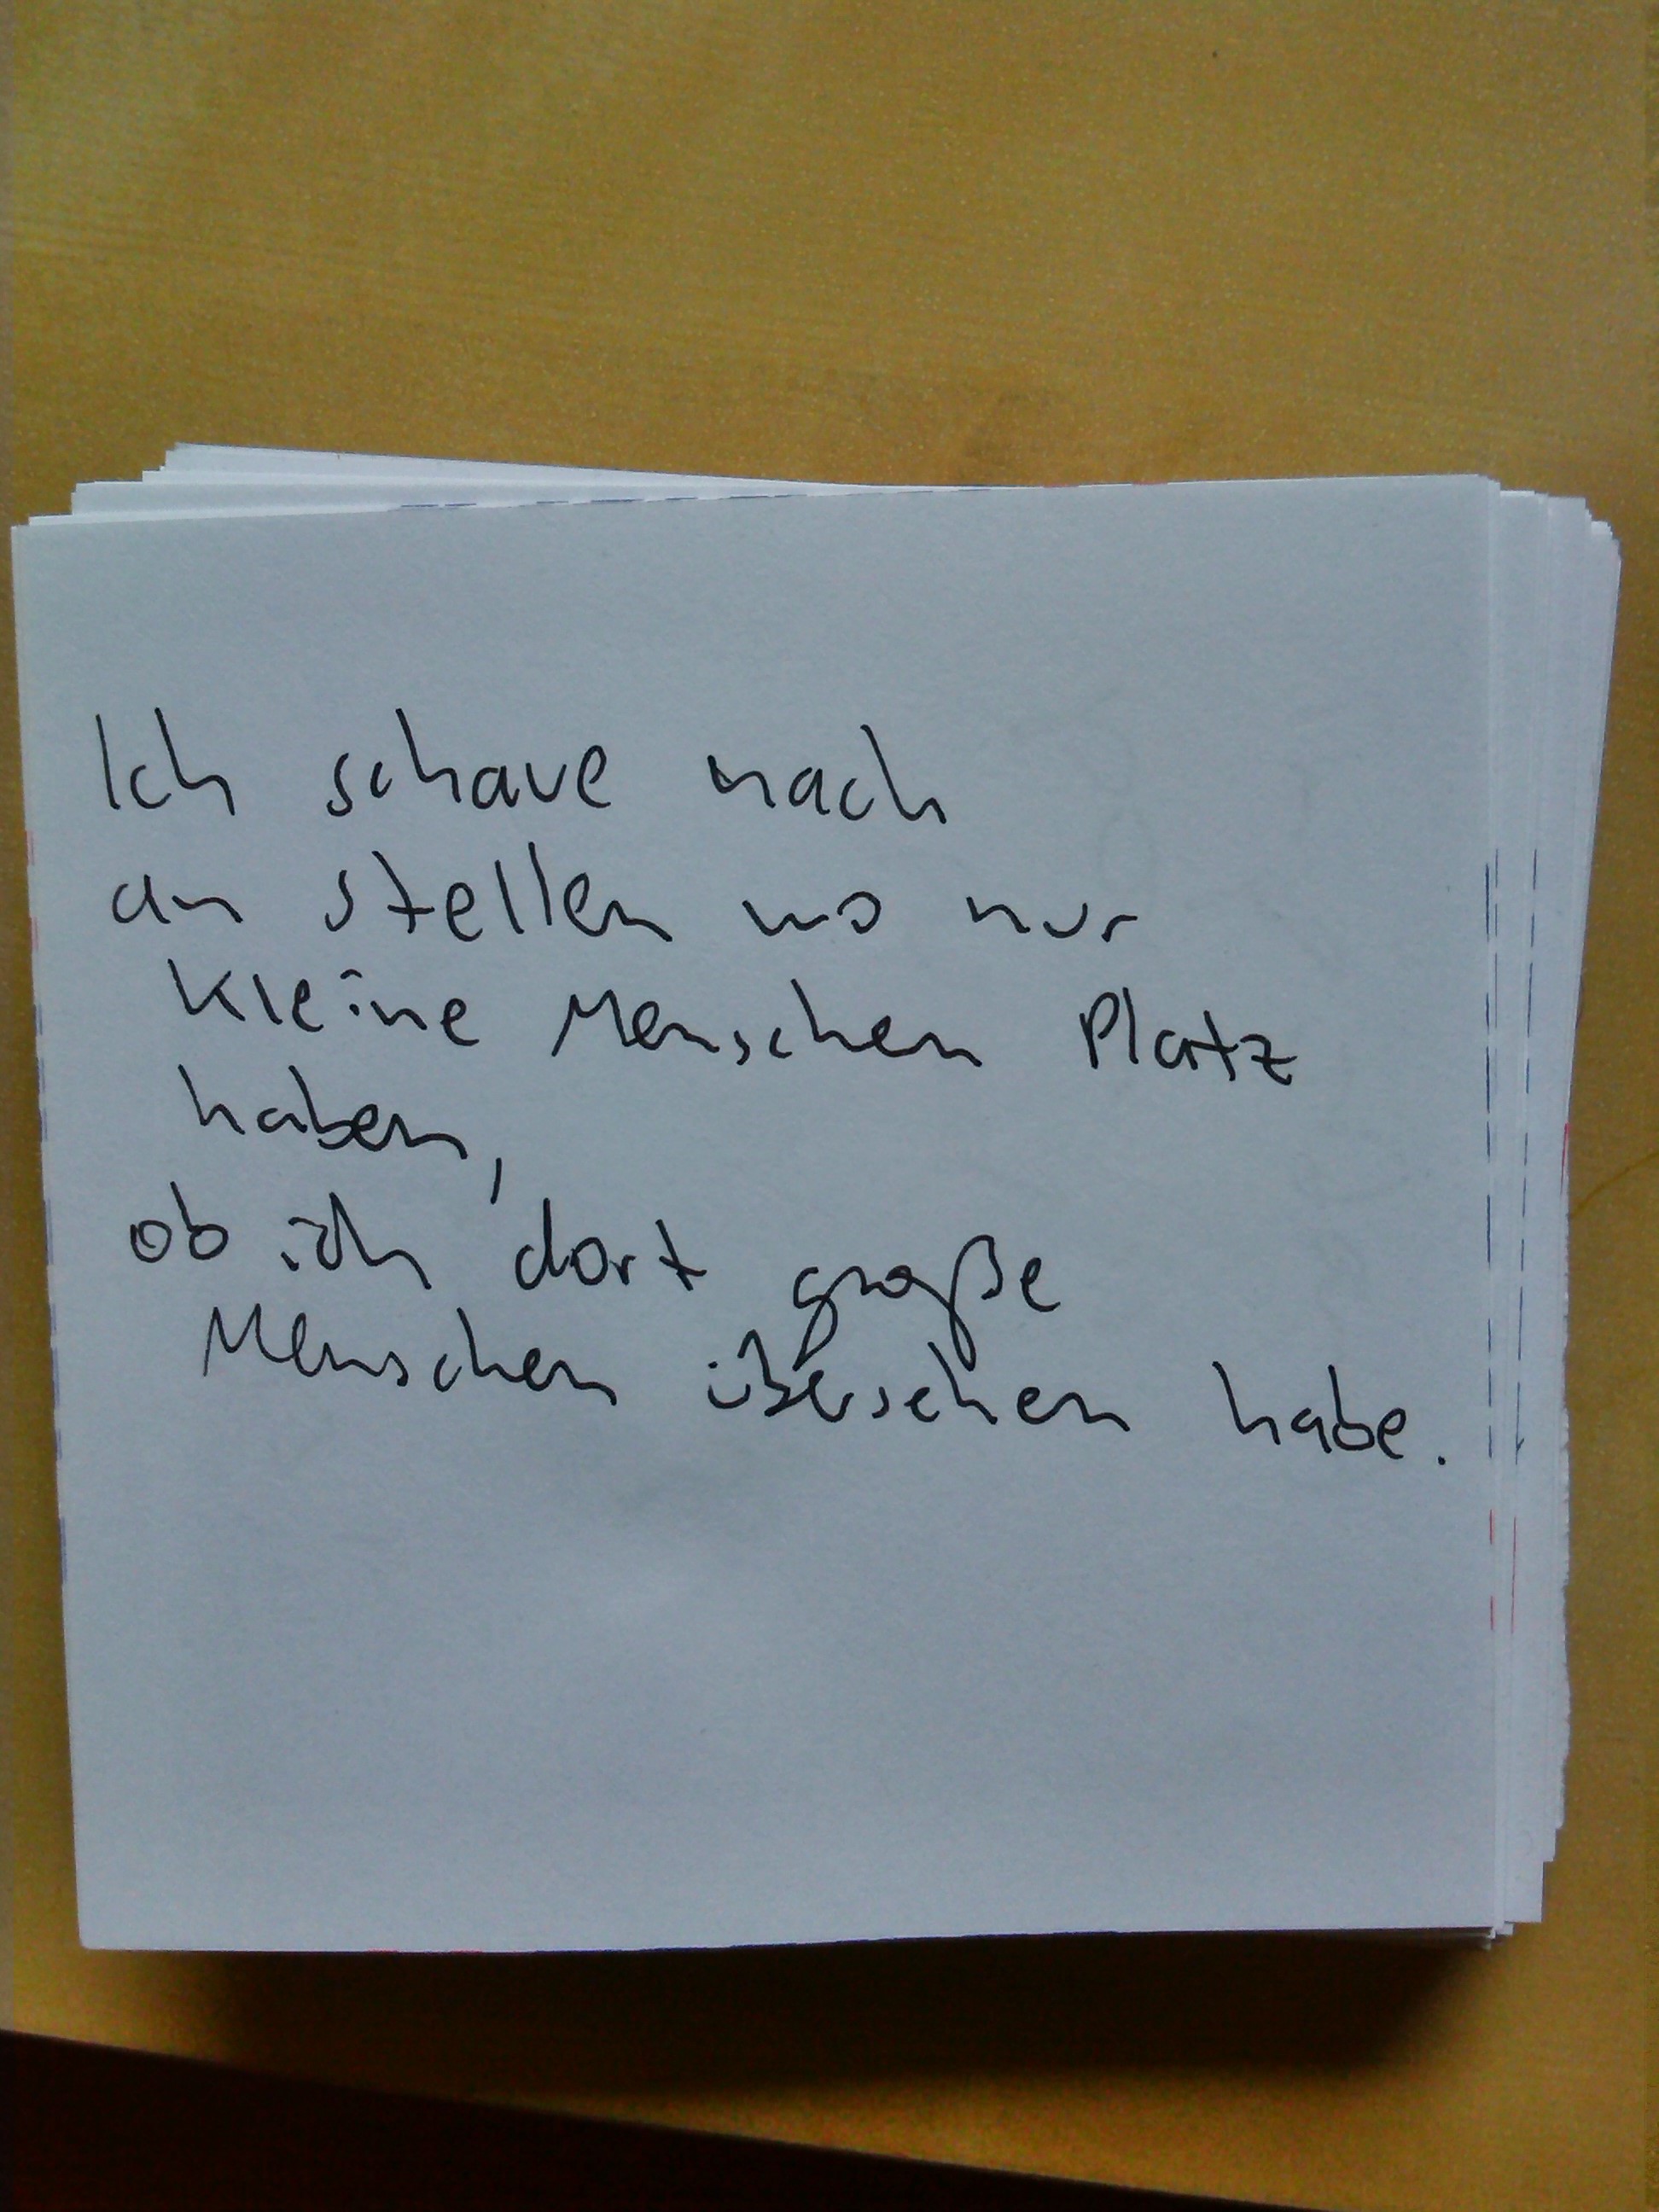 Ich schaue nach
an stellen wo nur
kleine Menschen Platz
haben,
ob ich dort große
Menschen übersehen habe.